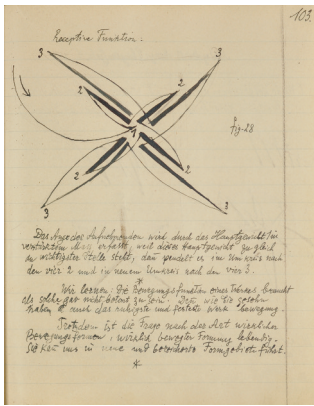 103.
Receptive Function:
3
3
2
2
1
fig. 28
2
3
3
Das Auge des Aufnehmenden wird durch das Hauptgewicht im
verstärkten erfasst, weil dieses Hauptgewicht zugleich
an wichtigster Stelle steht, dann pendelt er im Umkreis nach
den vier 2 und in neuem Umkreis nach den vier 3.
Wir lernen: die Bewegungsfunktion eines braucht
als solche gar nicht betont zu sein. Denn wie Sie gesehen
haben auch das ruhigste und festeste Werk Bewegung.
Trotzdem ist die Frage nach der Art wirklicher
Bewegungsformen, wirklich bewegter Formung lebendig.
Sie hat uns in neue und bereicherte Formgebiete geführt.
*